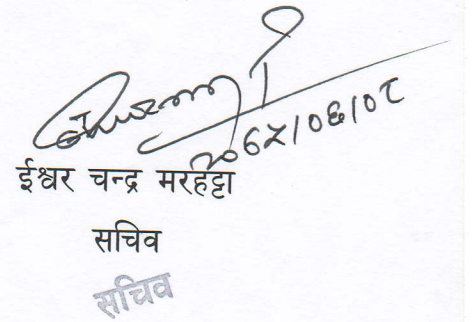 २०६५/०६/०८
ईश्वर चन्द्र मरहट्टा
सचिव
सचिव